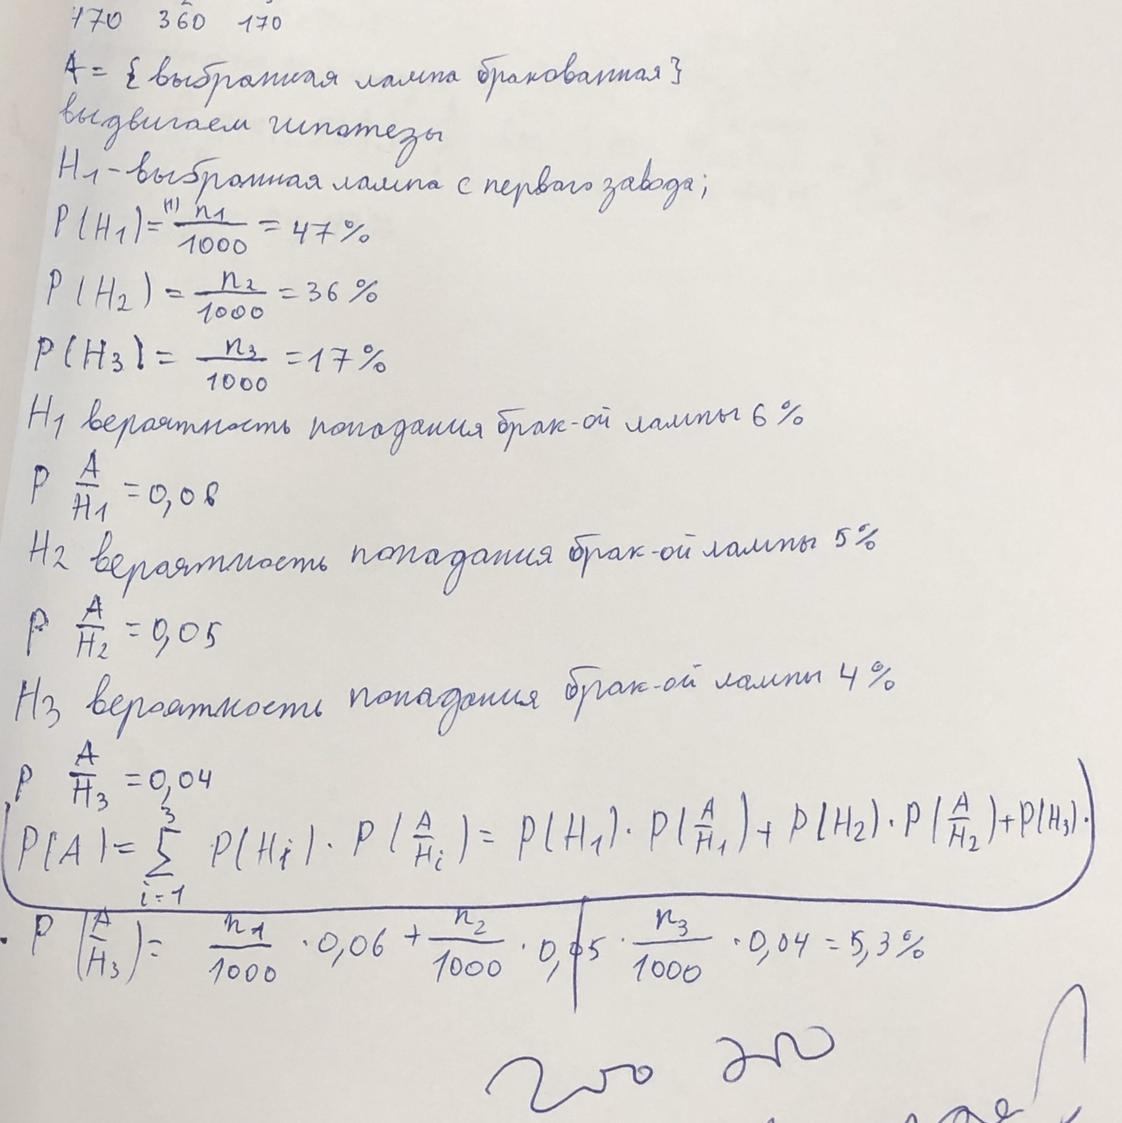 470 360 170
A = { выбранная лампа бракованная }
выдвигаем гипотезы
H1 - выбранная лампа с первого завода;
P(H1) = n1/1000 = 47%
P(H2) = n2/1000 = 36%
P(H3) = n3/1000 = 17%
H1 вероятность попадания брак-ой лампы 6%
P A/H1 = 0,06
H2 вероятность попадания брак-ой лампы 5%
P A/H2 = 0,05
H3 вероятность попадания брак-ой лампы 4%
P A/H3 = 0,04
P(A) = ∑ i=1 3 P(Hi) · P(A/Hi) = P(H1) · P(A/H1) + P(H2) · P(A/H2) + P(H3) ·
· P(A/H3) = n1/1000 · 0,06 + n2/1000 · 0,05 · n3/1000 · 0,04 = 5,3%